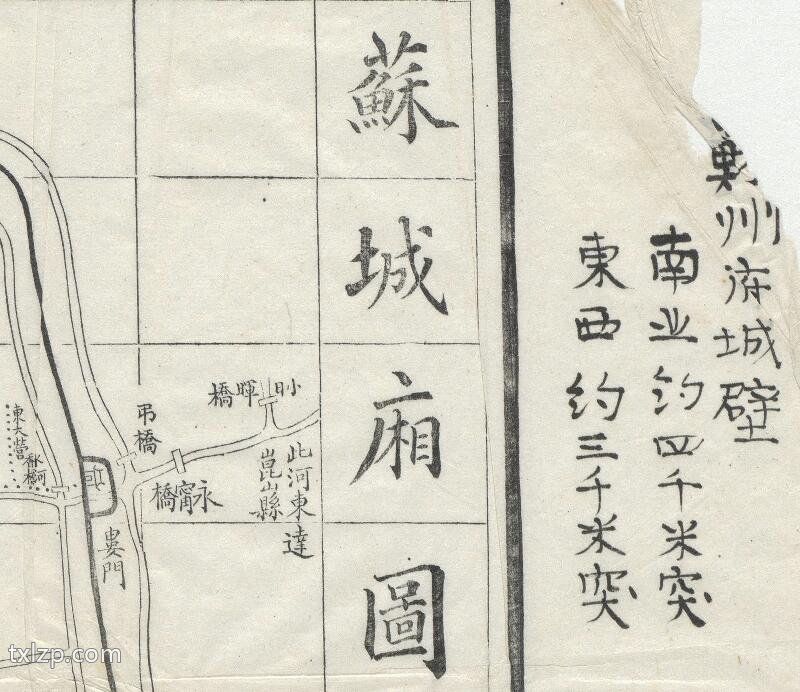 州府城壁
南北約四千米突
東西約三千米突
蘇城廂圖
橋暉
此河東達
崑山縣
弔橋
永甯橋
婁門
東大營
txlzp.com